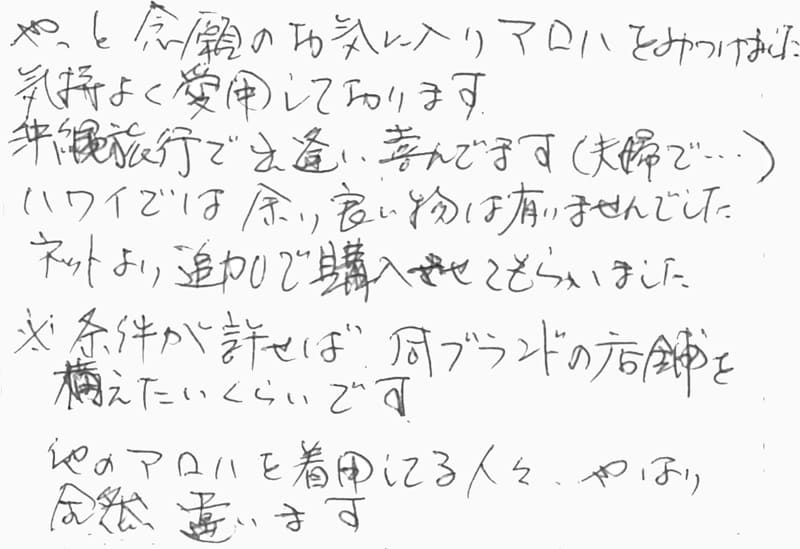 やっと念願のお気に入りアロハをみつけました
気持よく愛用しております
沖縄旅行で出逢い喜んでます(夫婦で…)
ハワイでは余り良い物は有りませんでした
ネットより追加で購入させてもらいました
※条件が許せば、同ブランドの店舗を
構えたいくらいです
他のアロハを着用してる人々、やはり
全然違います